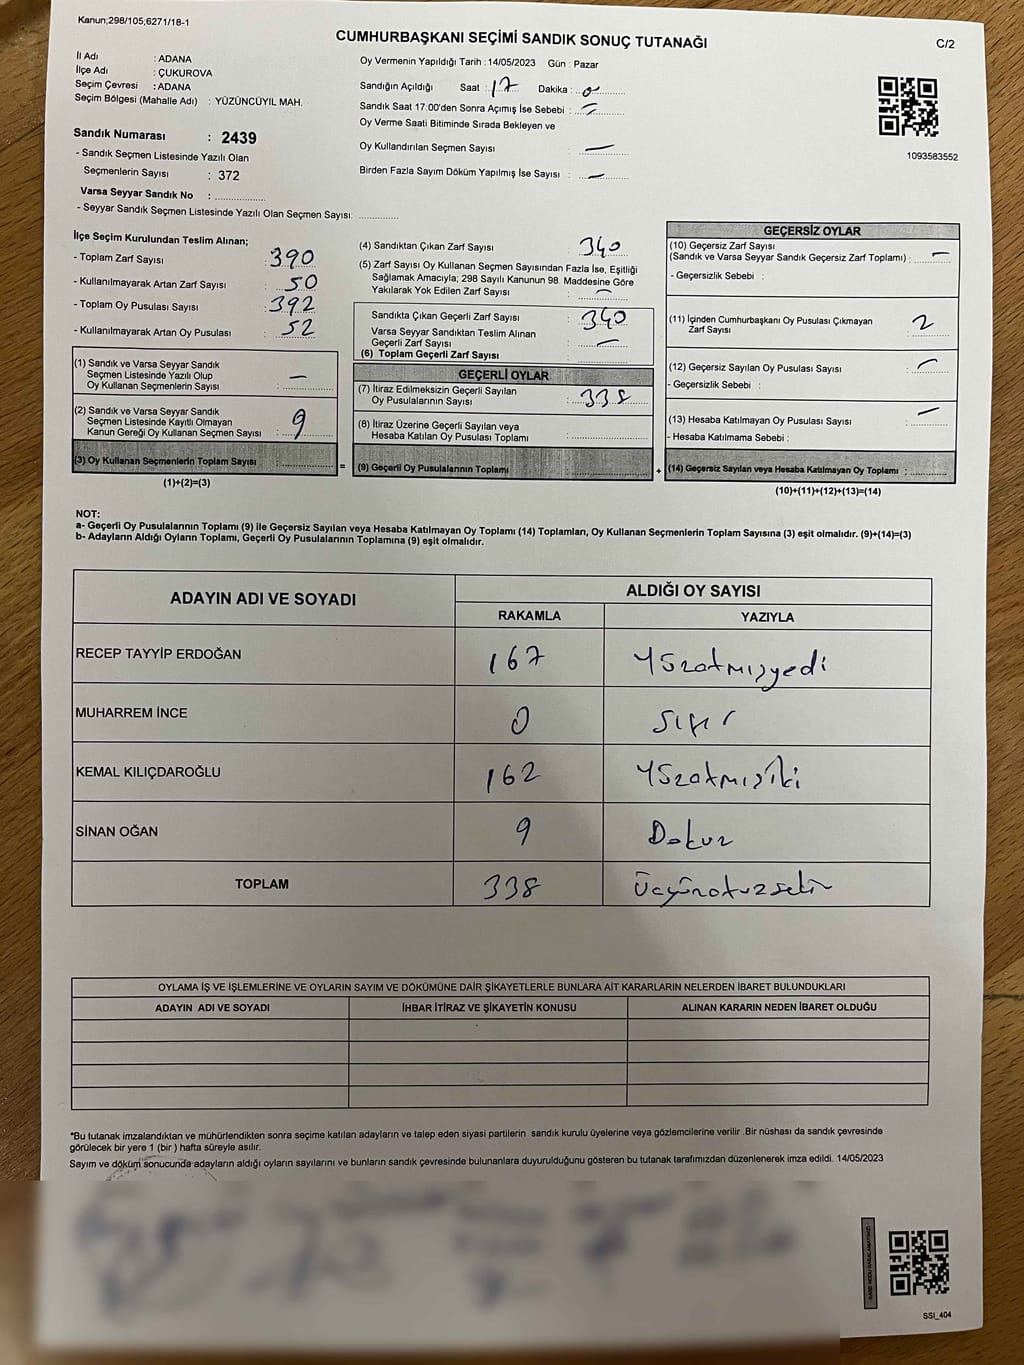 Kanun;298/105;6271/18-1
CUMHURBAŞKANI SEÇİMİ SANDIK SONUÇ TUTANAĞI
C/2
İl Adı : ADANA
İlçe Adı : ÇUKUROVA
Seçim Çevresi : ADANA
Seçim Bölgesi (Mahalle Adı) : YÜZÜNCÜYIL MAH.
Sandık Numarası : 2439
- Sandık Seçmen Listesinde Yazılı Olan
Seçmenlerin Sayısı : 372
Varsa Seyyar Sandık No :
- Seyyar Sandık Seçmen Listesinde Yazılı Olan Seçmen Sayısı:
Oy Vermenin Yapıldığı Tarih : 14/05/2023 Gün : Pazar
Sandığın Açıldığı Saat : 17 Dakika : 0
Sandık Saat 17:00'den Sonra Açımış İse Sebebi : —
Oy Verme Saati Bitiminde Sırada Bekleyen ve
Oy Kullandırılan Seçmen Sayısı : —
Birden Fazla Sayım Döküm Yapılmış İse Sayısı : —
1093583552
İlçe Seçim Kurulundan Teslim Alınan;
- Toplam Zarf Sayısı : 390
- Kullanılmayarak Artan Zarf Sayısı : 50
- Toplam Oy Pusulası Sayısı : 392
- Kullanılmayarak Artan Oy Pusulası : 52
(1) Sandık ve Varsa Seyyar Sandık
Seçmen Listesinde Yazılı Olup
Oy Kullanan Seçmenlerin Sayısı : —
(2) Sandık ve Varsa Seyyar Sandık
Seçmen Listesinde Kayıtlı Olmayan
Kanun Gereği Oy Kullanan Seçmen Sayısı : 9
(3) Oy Kullanan Seçmenlerin Toplam Sayısı :
(1)+(2)=(3)
=
(4) Sandıktan Çıkan Zarf Sayısı : 340
(5) Zarf Sayısı Oy Kullanan Seçmen Sayısından Fazla İse, Eşitliği
Sağlamak Amacıyla; 298 Sayılı Kanunun 98. Maddesine Göre
Yakılarak Yok Edilen Zarf Sayısı : —
Sandıkta Çıkan Geçerli Zarf Sayısı : 340
Varsa Seyyar Sandıktan Teslim Alınan
Geçerli Zarf Sayısı : —
(6) Toplam Geçerli Zarf Sayısı :
GEÇERLİ OYLAR
(7) İtiraz Edilmeksizin Geçerli Sayılan
Oy Pusulalarının Sayısı : 338
(8) İtiraz Üzerine Geçerli Sayılan veya
Hesaba Katılan Oy Pusulası Toplamı :
(9) Geçerli Oy Pusulalarının Toplamı
+
GEÇERSİZ OYLAR
(10) Geçersiz Zarf Sayısı
(Sandık ve Varsa Seyyar Sandık Geçersiz Zarf Toplamı) : —
- Geçersizlik Sebebi :
(11) İçinden Cumhurbaşkanı Oy Pusulası Çıkmayan
Zarf Sayısı : 2
(12) Geçersiz Sayılan Oy Pusulası Sayısı : —
- Geçersizlik Sebebi :
(13) Hesaba Katılmayan Oy Pusulası Sayısı : —
- Hesaba Katılmama Sebebi :
(14) Geçersiz Sayılan veya Hesaba Katılmayan Oy Toplamı :
(10)+(11)+(12)+(13)=(14)
NOT:
a- Geçerli Oy Pusulalarının Toplamı (9) ile Geçersiz Sayılan veya Hesaba Katılmayan Oy Toplamı (14) Toplamları, Oy Kullanan Seçmenlerin Toplam Sayısına (3) eşit olmalıdır. (9)+(14)=(3)
b- Adayların Aldığı Oyların Toplamı, Geçerli Oy Pusulalarının Toplamına (9) eşit olmalıdır.
ADAYIN ADI VE SOYADI
ALDIĞI OY SAYISI
RAKAMLA YAZIYLA
RECEP TAYYİP ERDOĞAN 167 Yüzatmışyedi
MUHARREM İNCE 0 Sıfır
KEMAL KILIÇDAROĞLU 162 Yüzatmışiki
SİNAN OĞAN 9 Dokuz
TOPLAM 338 Üçyüzotuzsekiz
OYLAMA İŞ VE İŞLEMLERİNE VE OYLARIN SAYIM VE DÖKÜMÜNE DAİR ŞİKAYETLERLE BUNLARA AİT KARARLARIN NELERDEN İBARET BULUNDUKLARI
ADAYIN ADI VE SOYADI İHBAR İTİRAZ VE ŞİKAYETİN KONUSU ALINAN KARARIN NEDEN İBARET OLDUĞU
*Bu tutanak imzalandıktan ve mühürlendikten sonra seçime katılan adayların ve talep eden siyasi partilerin sandık kurulu üyelerine veya gözlemcilerine verilir .Bir nüshası da sandık çevresinde
görülecek bir yere 1 (bir ) hafta süreyle asılır.
Sayım ve döküm sonucunda adayların aldığı oyların sayılarını ve bunların sandık çevresinde bulunanlara duyurulduğunu gösteren bu tutanak tarafımızdan düzenlenerek imza edildi. 14/05/2023
SSI_404